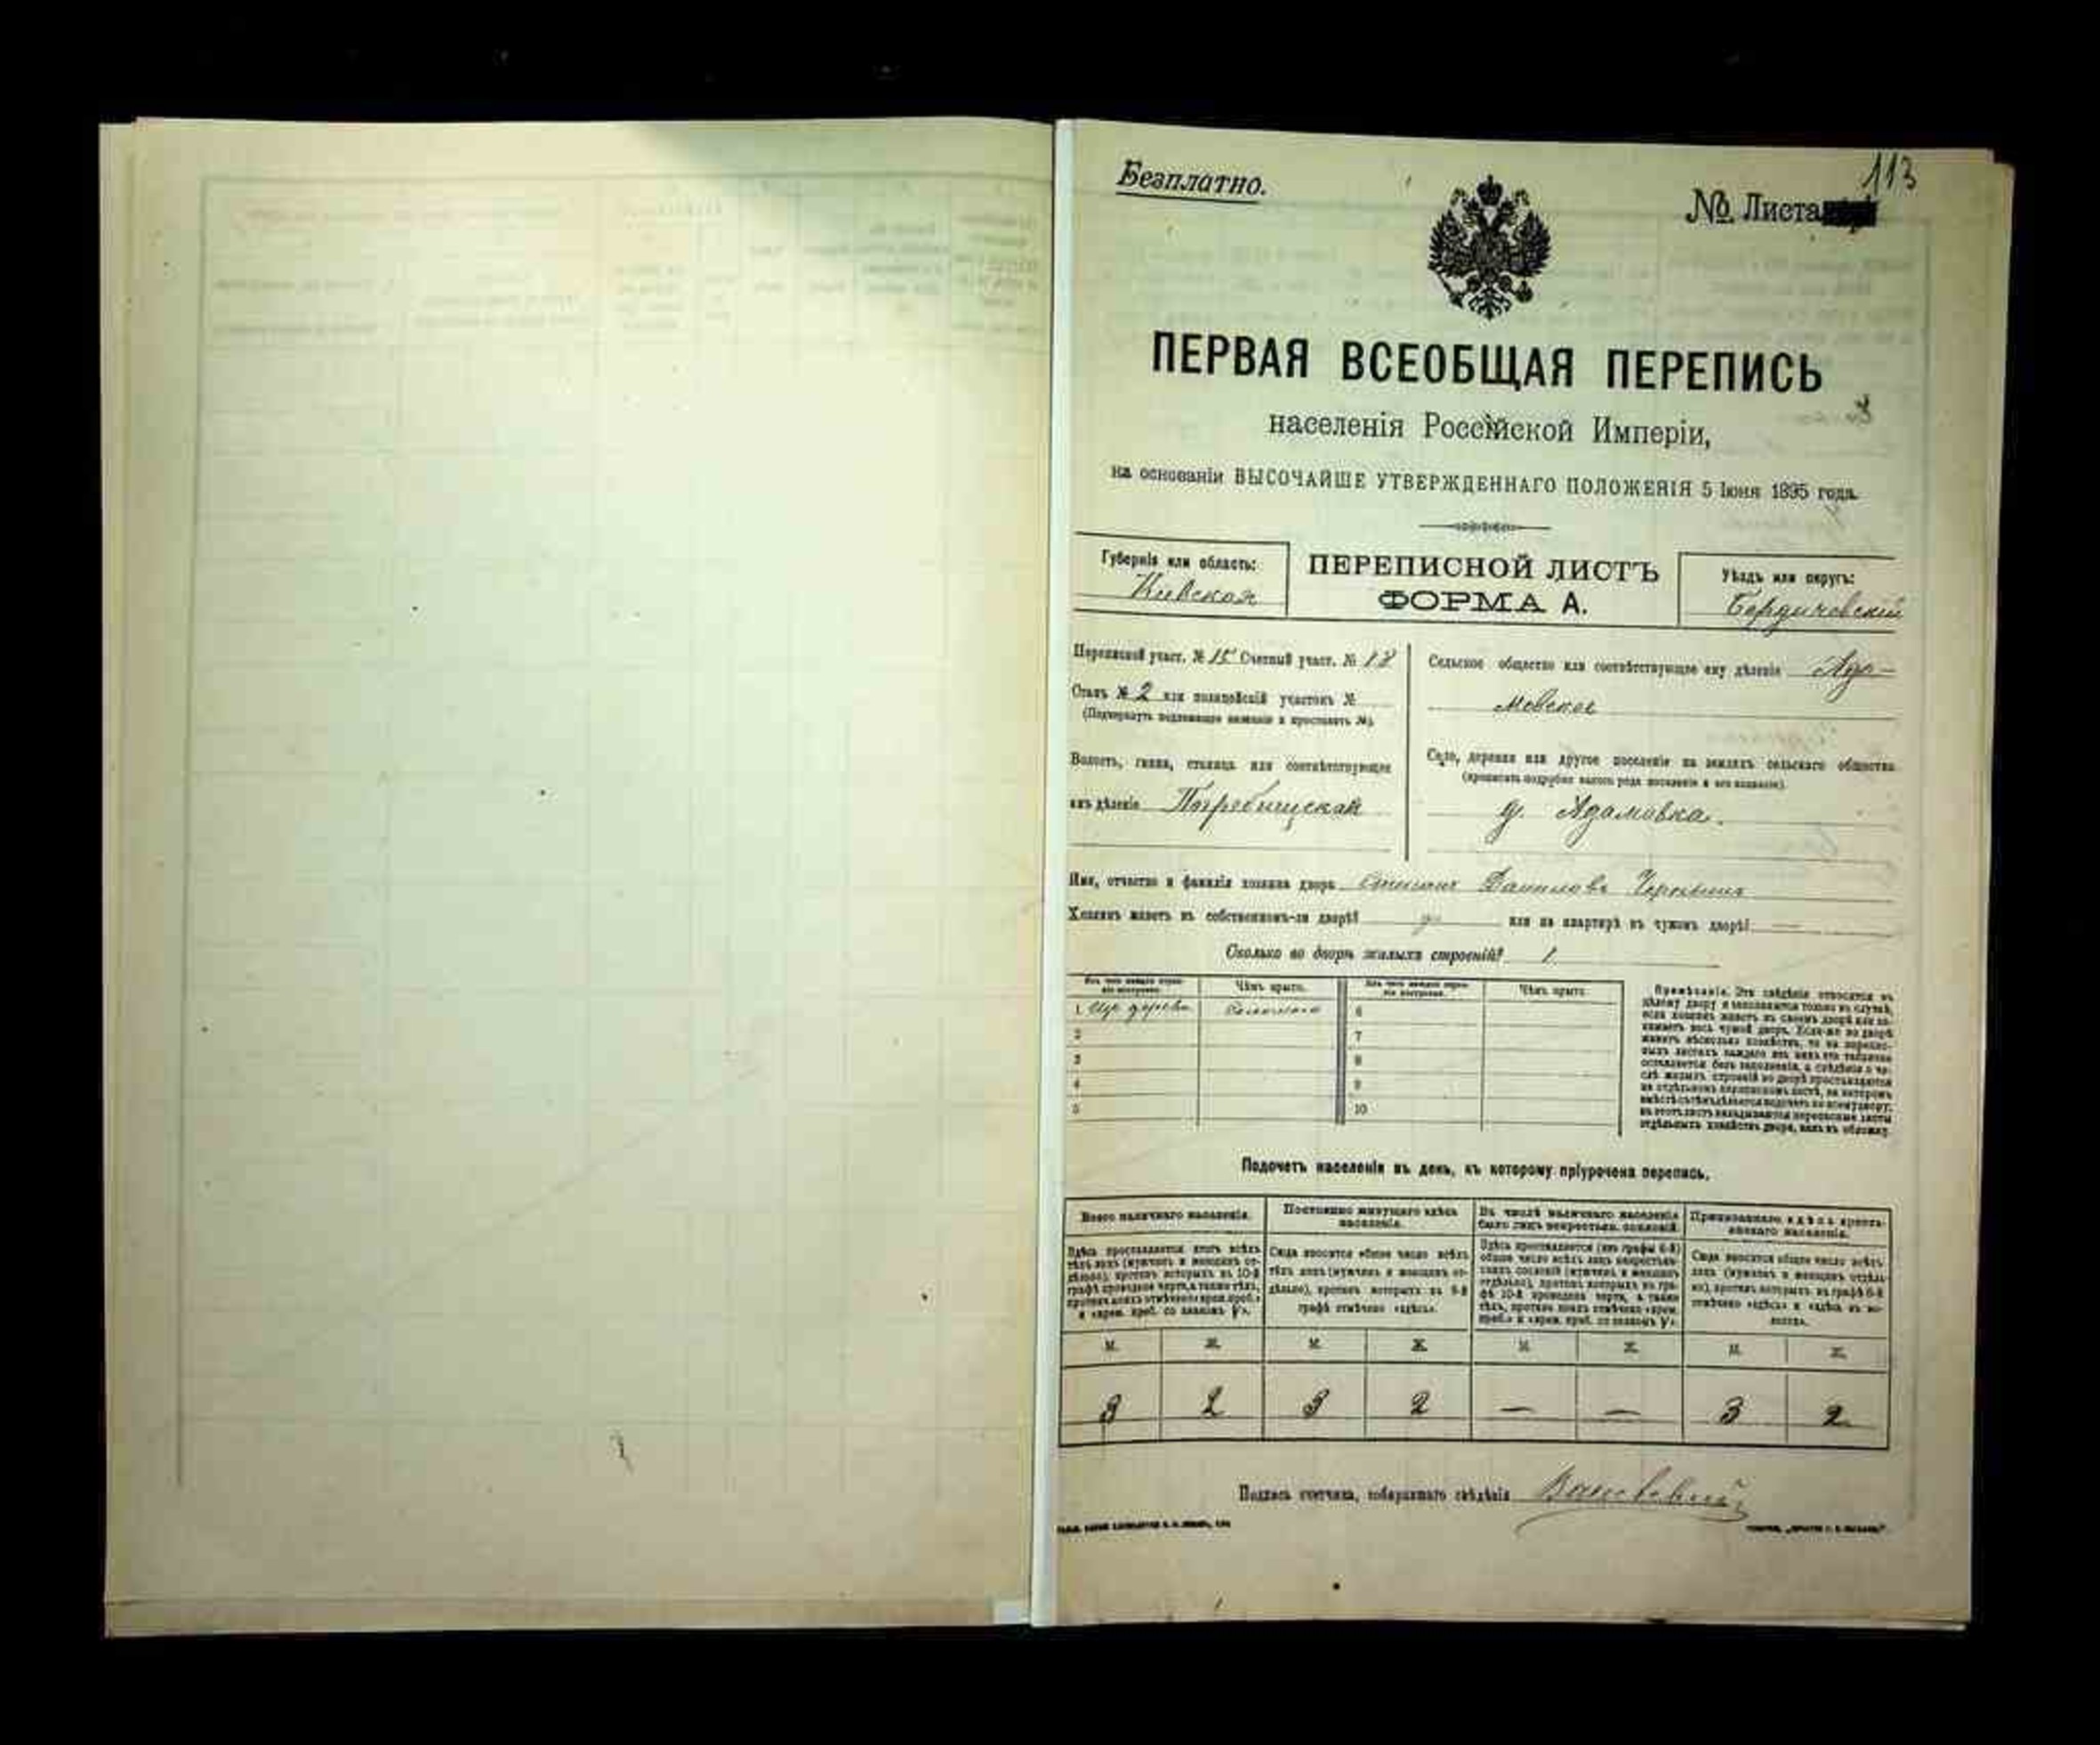 113
Безплатно.
№ Листа
ПЕРВАЯ ВСЕОБЩАЯ ПЕРЕПИСЬ
населенія Россійской Имперіи,
на основаніи ВЫСОЧАЙШЕ УТВЕРЖДЕННАГО ПОЛОЖЕНІЯ 5 Іюня 1895 года.
Губернія или область:
Кіевская
ПЕРЕПИСНОЙ ЛИСТЪ
ФОРМА А.
Уѣздъ или округъ:
Бердичевскій
Переписной участ. № 15 Счетный участ. № 18
Станъ № 2 или полицейскій участокъ №
(Подчеркнуть подлежащее названіе и проставить №).
Волость, гмина, станица или соотвѣтствующее
имъ дѣленіе Погребищская
Сельское общество или соотвѣтствующее ему дѣленіе Ада-
мовское
Село, деревня или другое поселеніе на земляхъ сельскаго общества
(прописать подробно какого рода поселеніе и его названіе).
д. Адамовка.
Имя, отчество и фамилія хозяина двора Даниловъ
Хозяинъ живетъ въ собственномъ-ли дворѣ? да или на квартирѣ въ чужомъ дворѣ? —
Сколько во дворѣ жилыхъ строеній? 1
Изъ чего каждое строе-
ніе построено.
Чѣмъ крыто.
Изъ чего каждое строе-
ніе построено.
Чѣмъ крыто.
1 Изъ дерева Соломою 6
2 7
3 8
4 9
5 10
Примѣчаніе. Эти свѣдѣнія относятся къ
цѣлому двору и заполняются только въ случаѣ,
если хозяинъ живетъ въ своемъ дворѣ или за-
нимаетъ весь чужой дворъ. Если-же во дворѣ
живетъ нѣсколько хозяйствъ, то на перепис-
ныхъ листахъ каждаго изъ нихъ эта табличка
оставляется безъ заполненія, а свѣдѣнія о чи-
слѣ жилыхъ строеній во дворѣ проставляются
на отдѣльномъ переписномъ листѣ, на которомъ
вмѣстѣ съ тѣмъ дѣлается подсчетъ по всему двору;
въ этотъ листъ вкладываются переписные листы
отдѣльныхъ хозяйствъ двора, какъ въ обложку.
Подсчетъ населенія въ день, къ которому пріурочена перепись.
Всего наличнаго населенія.
Постоянно живущаго здѣсь
населенія.
Въ числѣ наличнаго населенія
было лицъ некрестьян. сословій.
Приписаннаго здѣсь кресть-
янскаго населенія.
Здѣсь проставляется итогъ всѣхъ
тѣхъ лицъ (мужчинъ и женщинъ от-
дѣльно), противъ которыхъ въ 10-й
графѣ проведена черта, а также тѣхъ,
противъ коихъ отмѣчено «врем. проб.»
и «врем. преб. со знакомъ V».
Сюда вносится общее число всѣхъ
тѣхъ лицъ (мужчинъ и женщинъ от-
дѣльно), противъ которыхъ въ 9-й
графѣ отмѣчено «здѣсь».
Здѣсь проставляется (изъ графы 6-й)
общее число всѣхъ лицъ некрестьян-
скихъ сословій (мужчинъ и женщинъ
отдѣльно), противъ которыхъ въ гра-
фѣ 10-й проведена черта, а также
тѣхъ, противъ коихъ отмѣчено «врем.
преб.» и «врем. преб. со знакомъ V».
Сюда вносится общее число всѣхъ
лицъ (мужчинъ и женщинъ отдѣль-
но), противъ которыхъ въ графѣ 8-й
отмѣчено «здѣсь» и «здѣсь въ во-
лости».
М. Ж. М. Ж. М. Ж. М. Ж.
3 2 3 2 — — 3 2
Подпись счетчика, собиравшаго свѣдѣнія